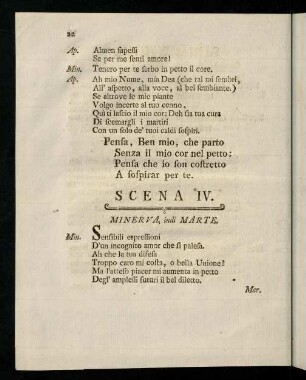 22
Ap. Almen sapessi
Se per me senti amore!
Min. Tenero per te serbo in petto il core.
Ap. Ah mio Nume, mia Dea (che tal mi sembri,
All' aspetto, alla voce, al bel sembiante.)
Se altrove le mie piante
Volgo incerte al tuo cenno,
Quì ti lascio il mio cor: Deh sia tua cura
Di scemargli i martirj
Con un solo de' tuoi caldi sospiri.
Pensa, Ben mio, che parto
Senza il mio cor nel petto:
Pensa che io son costretto
A sospirar per te.
SCENA IV.
MINERVA, indi MARTE.
Min. Sensibili espressioni
D'un incognito amor che si palesa.
Ah che la tua difesa
Troppo caro mi costa, o bella Unione!
Ma l'attesò piacer mi aumenta in petto
Degl' amplessi futuri il bel diletto.
Mer.